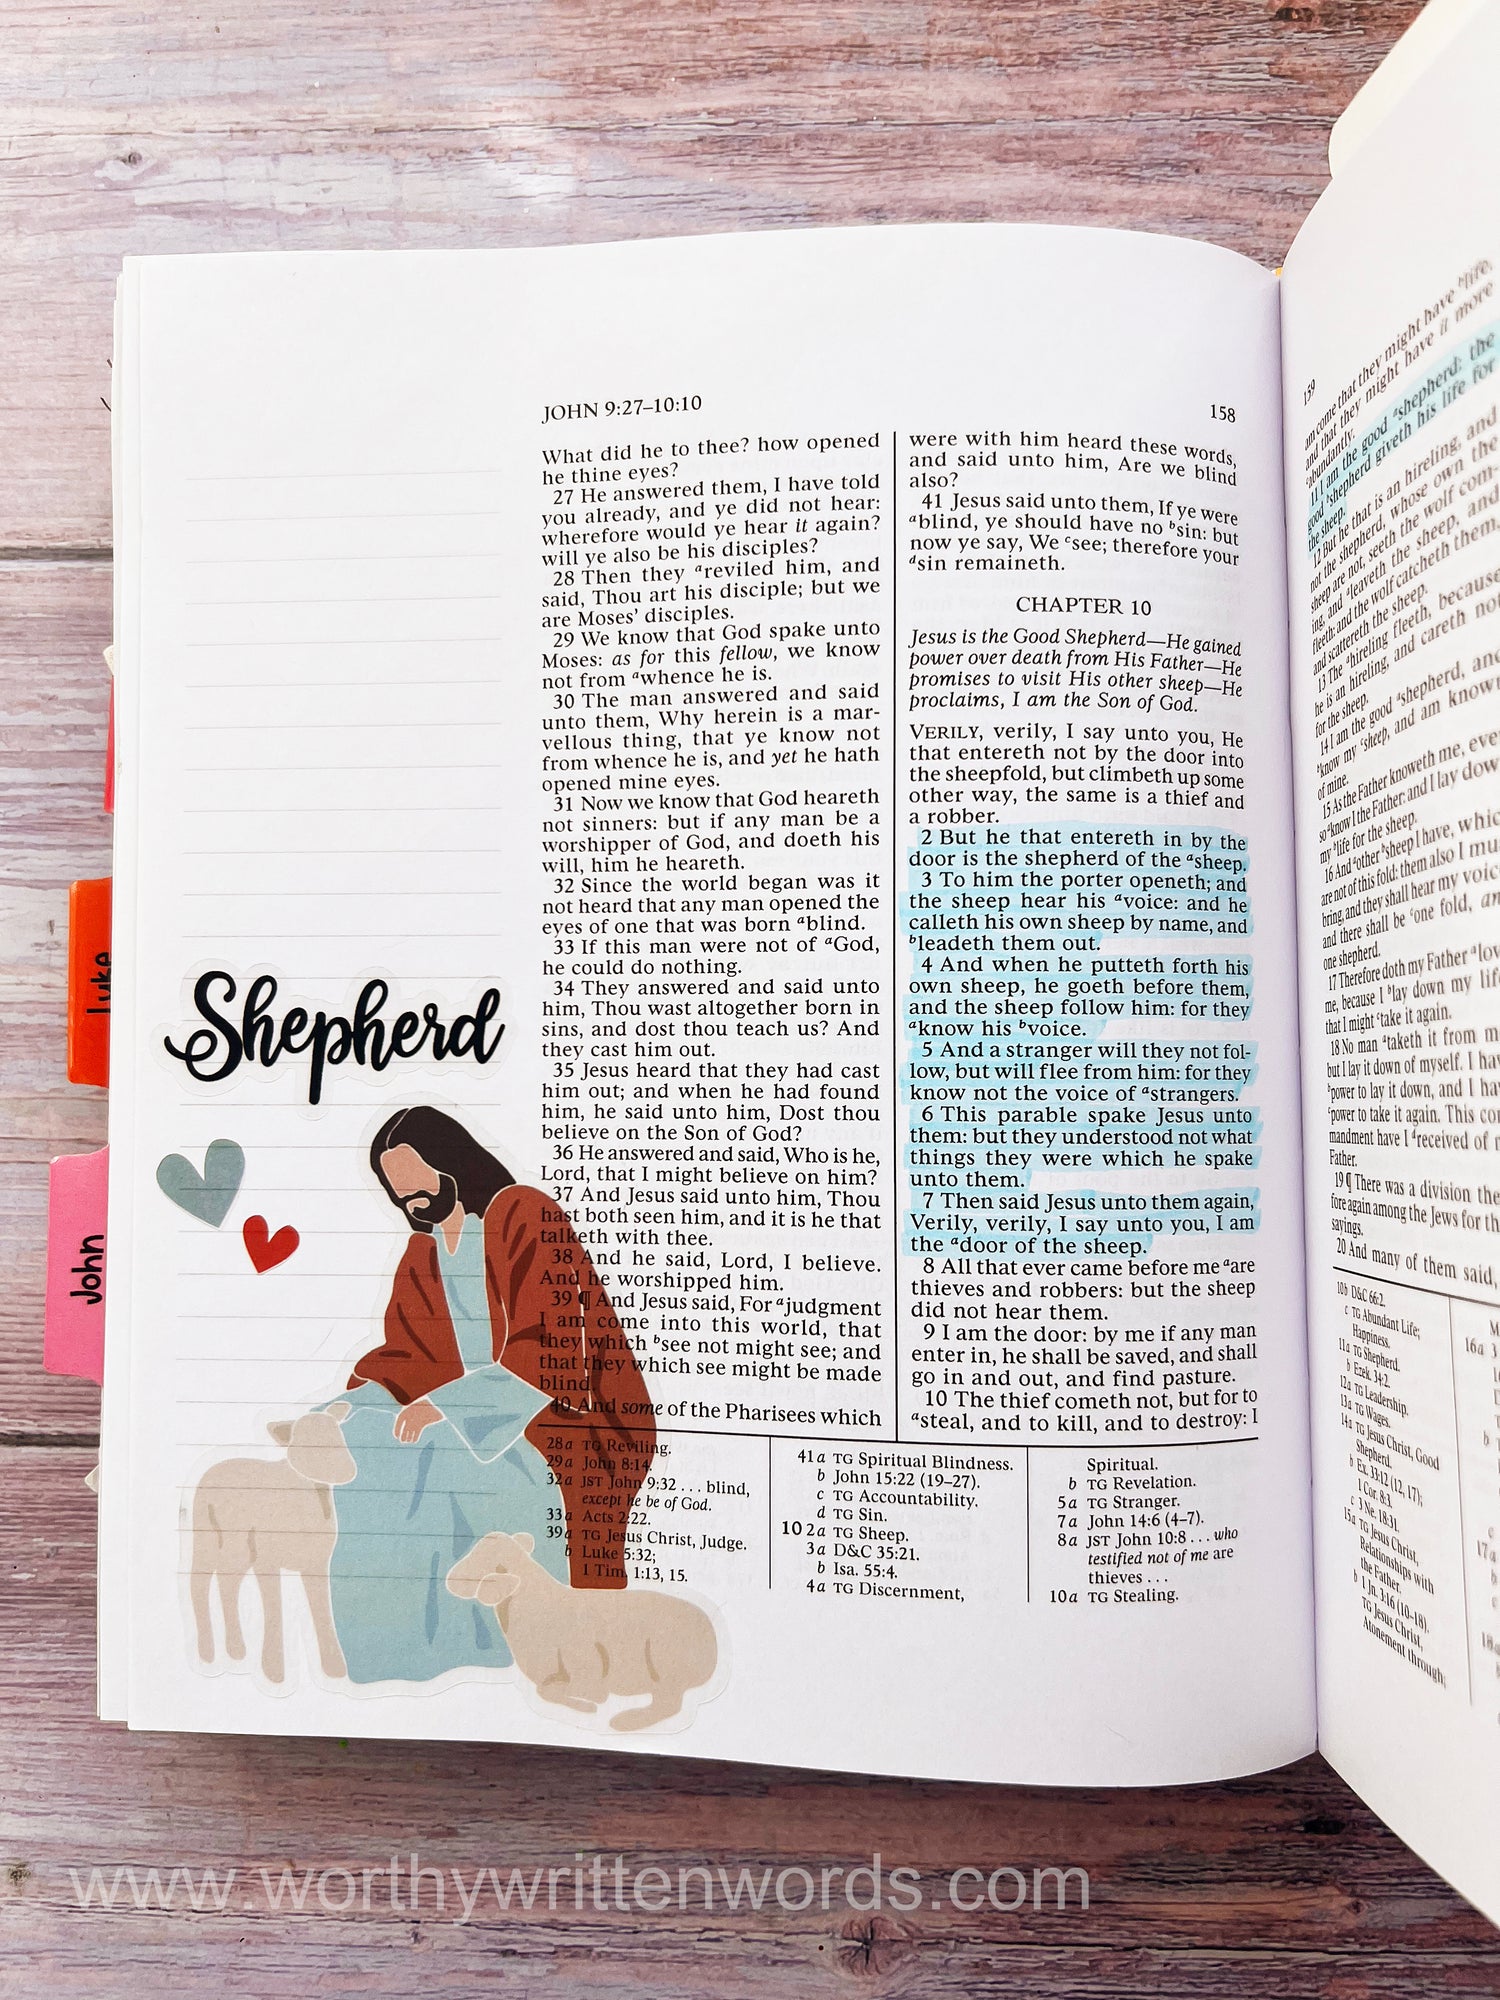 JOHN 9:27–10:10
158
What did he to thee? how opened
he thine eyes?
27 He answered them, I have told
you already, and ye did not hear:
wherefore would ye hear it again?
will ye also be his disciples?
28 Then they ᵃreviled him, and
said, Thou art his disciple; but we
are Moses’ disciples.
29 We know that God spake unto
Moses: as for this fellow, we know
not from ᵃwhence he is.
30 The man answered and said
unto them, Why herein is a mar-
vellous thing, that ye know not
from whence he is, and yet he hath
opened mine eyes.
31 Now we know that God heareth
not sinners: but if any man be a
worshipper of God, and doeth his
will, him he heareth.
32 Since the world began was it
not heard that any man opened the
eyes of one that was born ᵃblind.
33 If this man were not of ᵃGod,
he could do nothing.
34 They answered and said unto
him, Thou wast altogether born in
sins, and dost thou teach us? And
they cast him out.
35 Jesus heard that they had cast
him out; and when he had found
him, he said unto him, Dost thou
believe on the Son of God?
36 He answered and said, Who is he,
Lord, that I might believe on him?
37 And Jesus said unto him, Thou
hast both seen him, and it is he that
talketh with thee.
38 And he said, Lord, I believe.
And he worshipped him.
39 ¶ And Jesus said, For ᵃjudgment
I am come into this world, that
they which ᵇsee not might see; and
that they which see might be made
blind.
40 And some of the Pharisees which
were with him heard these words,
and said unto him, Are we blind
also?
41 Jesus said unto them, If ye were
ᵃblind, ye should have no ᵇsin: but
now ye say, We ᶜsee; therefore your
ᵈsin remaineth.
CHAPTER 10
Jesus is the Good Shepherd—He gained
power over death from His Father—He
promises to visit His other sheep—He
proclaims, I am the Son of God.
VERILY, verily, I say unto you, He
that entereth not by the door into
the sheepfold, but climbeth up some
other way, the same is a thief and
a robber.
2 But he that entereth in by the
door is the shepherd of the ᵃsheep.
3 To him the porter openeth; and
the sheep hear his ᵃvoice: and he
calleth his own sheep by name, and
ᵇleadeth them out.
4 And when he putteth forth his
own sheep, he goeth before them,
and the sheep follow him: for they
ᵃknow his ᵇvoice.
5 And a stranger will they not fol-
low, but will flee from him: for they
know not the voice of ᵃstrangers.
6 This parable spake Jesus unto
them: but they understood not what
things they were which he spake
unto them.
7 Then said Jesus unto them again,
Verily, verily, I say unto you, I am
the ᵃdoor of the sheep.
8 All that ever came before me ᵃare
thieves and robbers: but the sheep
did not hear them.
9 I am the door: by me if any man
enter in, he shall be saved, and shall
go in and out, and find pasture.
10 The thief cometh not, but for to
ᵃsteal, and to kill, and to destroy: I
28a TG Reviling.
29a John 8:14.
32a JST John 9:32 . . . blind,
except he be of God.
33a Acts 2:22.
39a TG Jesus Christ, Judge.
b Luke 5:32;
1 Tim. 1:13, 15.
41a TG Spiritual Blindness.
b John 15:22 (19–27).
c TG Accountability.
d TG Sin.
10 2a TG Sheep.
3a D&C 35:21.
b Isa. 55:4.
4a TG Discernment,
Spiritual.
b TG Revelation.
5a TG Stranger.
7a John 14:6 (4–7).
8a JST John 10:8 . . . who
testified not of me are
thieves . . .
10a TG Stealing.
Shepherd
Luke
John
159
am come that they might have ᵇlife,
and that they might have it more
ᶜabundantly.
11 I am the good ᵃshepherd: the
good ᵇshepherd giveth his life for
the sheep.
12 But he that is an hireling, and
not the shepherd, whose own the
sheep are not, seeth the wolf com-
ing, and ᵃleaveth the sheep, and
fleeth: and the wolf catcheth them,
and scattereth the sheep.
13 The ᵃhireling fleeth, because
he is an hireling, and careth not
for the sheep.
14 I am the good ᵃshepherd, and
ᵇknow my ᶜsheep, and am known
of mine.
15 As the Father knoweth me, eve
so ᵃknow I the Father: and I lay dow
my ᵇlife for the sheep.
16 And ᵃother ᵇsheep I have, whic
are not of this fold: them also I mu
bring, and they shall hear my voic
and there shall be ᶜone fold, an
one shepherd.
17 Therefore doth my Father ᵃlov
me, because I ᵇlay down my life
that I might ᶜtake it again.
18 No man ᵃtaketh it from m
but I lay it down of myself. I hav
ᵇpower to lay it down, and I have
ᶜpower to take it again. This com
mandment have I ᵈreceived of m
Father.
19 ¶ There was a division the
fore again among the Jews for th
sayings.
20 And many of them said,
10b D&C 66:2.
c TG Abundant Life;
Happiness.
11a TG Shepherd.
b Ezek. 34:2.
12a TG Leadership.
13a TG Wages.
14a TG Jesus Christ, Good
Shepherd.
b Ex. 33:12 (12, 17);
1 Cor. 8:3.
c 3 Ne. 18:31.
15a TG Jesus Christ,
Relationships with
the Father.
b 1 Jn. 3:16 (10–18).
TG Jesus Christ,
Atonement through;
16a
17a
www.worthywrittenwords.com